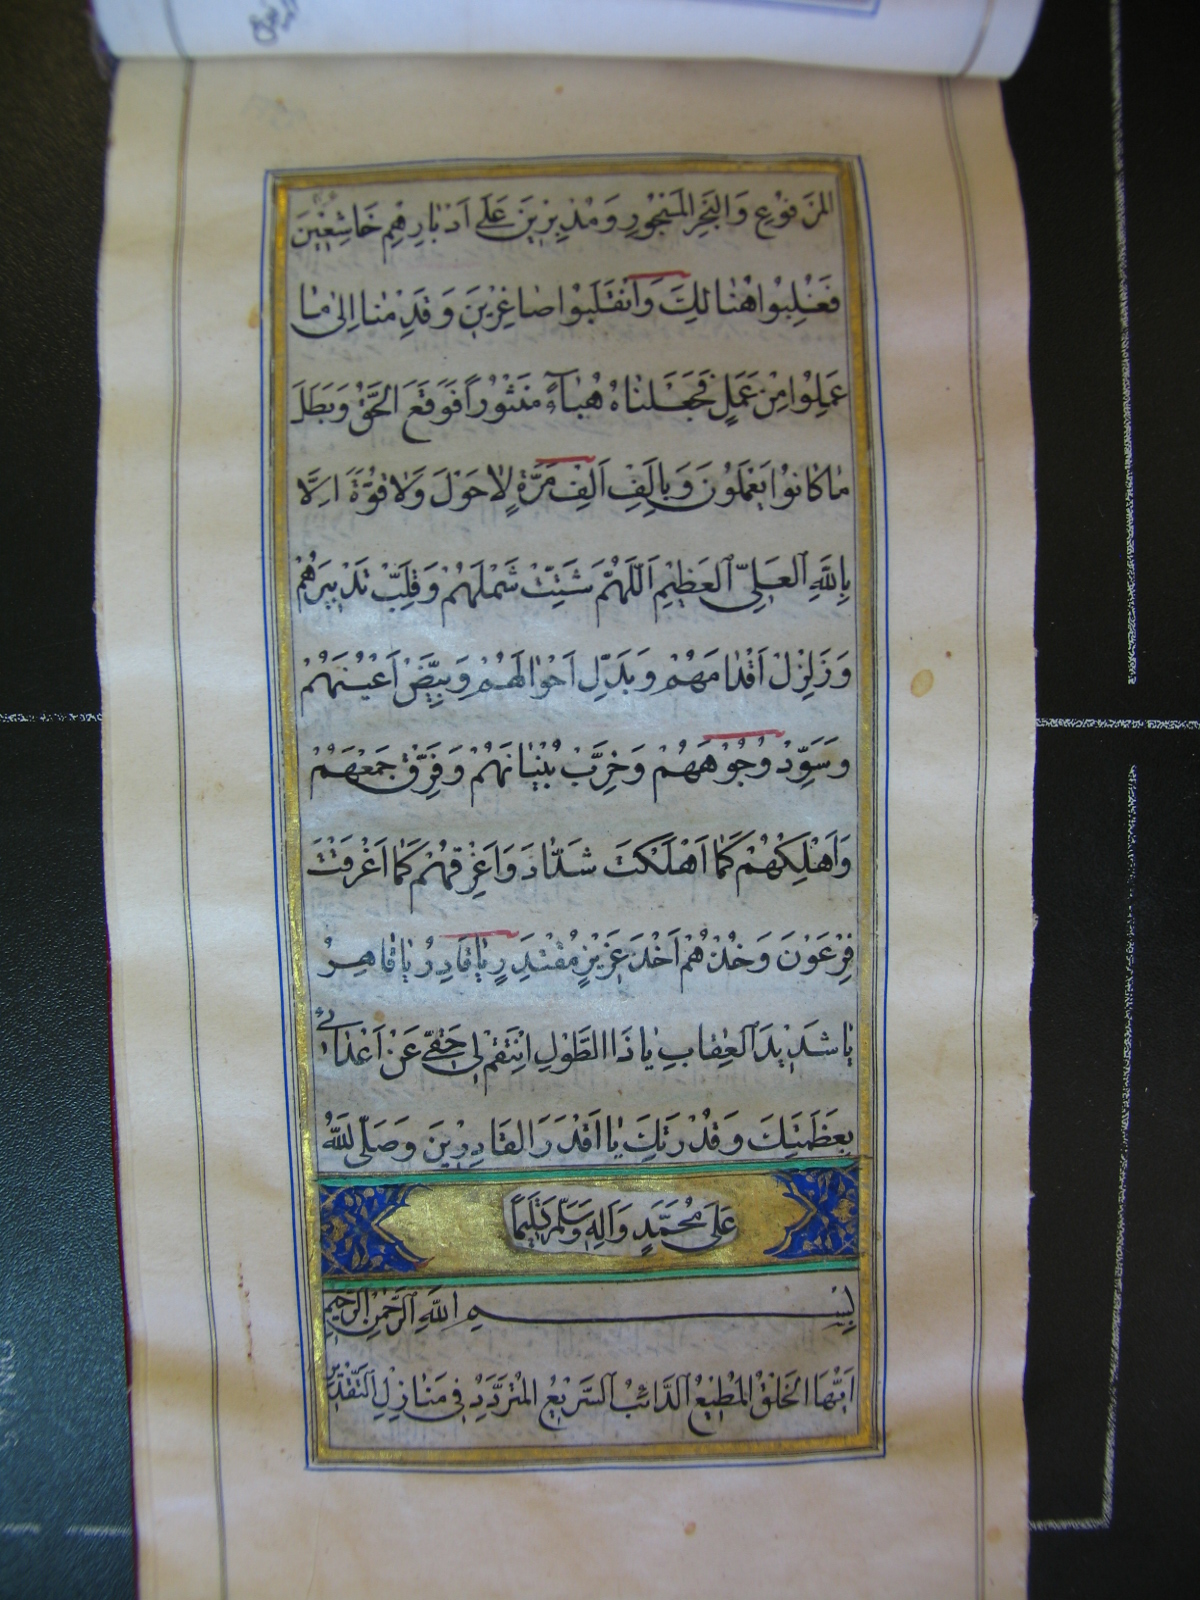 المَرْفُوْعِ وَالْبَحْرِ الْمَسْجُوْرِ وَمُدْبِرِيْنَ عَلٰى اَدْبَارِهِمْ خَاشِعِيْنَ
فَغُلِبُوا هُنَالِكَ وَانْقَلَبُوا صَاغِرِيْنَ وَقَدِمْنَا اِلٰى مَا
عَمِلُوا مِنْ عَمَلٍ فَجَعَلْنَاهُ هَبَآءً مَنْثُوْرًا فَوَقَعَ الْحَقُّ وَبَطَلَ
مَا كَانُوا يَعْمَلُونَ وَبِاَلْفِ اَلْفِ مَرَّةٍ لَا حَوْلَ وَلَا قُوَّةَ اِلَّا
بِاللّٰهِ الْعَلِىِّ الْعَظِيْمِ اَللّٰهُمَّ شَتِّتْ شَمْلَهُمْ وَقَلِّبْ تَدْبِيْرَهُمْ
وَزَلْزِلْ اَقْدَامَهُمْ وَبَدِّلْ اَحْوَالَهُمْ وَبَيِّضْ اَعْيُنَهُمْ
وَسَوِّدْ وُجُوْهَهُمْ وَخَرِّبْ بُنْيَانَهُمْ وَفَرِّقْ جَمْعَهُمْ
وَاَهْلِكْهُمْ كَمَا اَهْلَكْتَ شَدَّادَ وَاَغْرِقْهُمْ كَمَا اَغْرَقْتَ
فِرْعَوْنَ وَخُذْهُمْ اَخْذَ عَزِيْزٍ مُقْتَدِرٍ يَا قَادِرُ يَا قَاهِرُ
يَا شَدِيْدَ الْعِقَابِ يَا ذَا الطَّوْلِ اِنْتَقِمْ لِى حَقِّى عَنْ اَعْدَائِى
بِعَظَمَتِكَ وَقُدْرَتِكَ يَا اَقْدَرَ الْقَادِرِيْنَ وَصَلَّى اللّٰهُ
عَلٰى مُحَمَّدٍ وَاٰلِهٖ وَسَلَّمَ تَسْلِيْمًا
بِسْمِ اللّٰهِ الرَّحْمٰنِ الرَّحِيْمِ
اَيُّهَا الْخَلْقُ الْمُطِيْعُ الدَّائِبُ السَّرِيْعُ الْمُتَرَدِّدُ فِى مَنَازِلِ التَّقْدِيْرِ